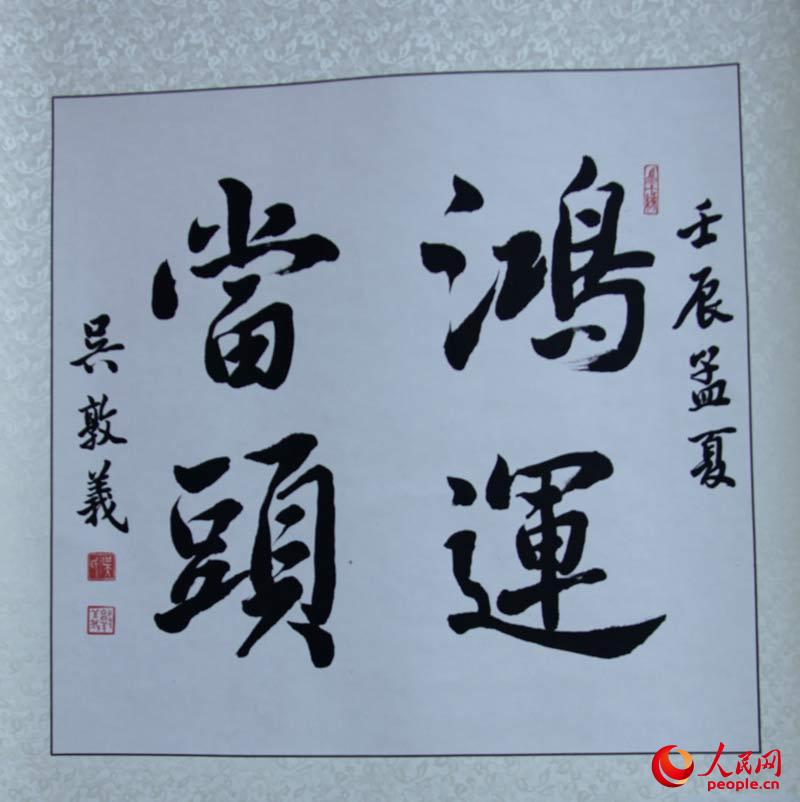 壬辰孟夏
鸿運
當頭
吴敦義
人民网
people.cn